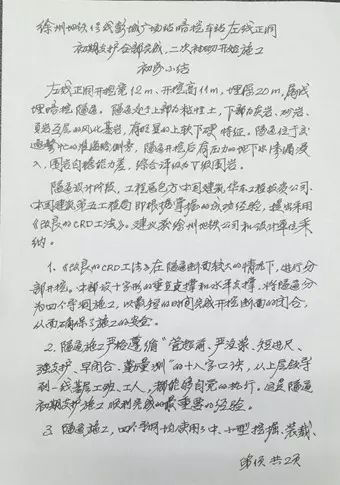 徐州地铁1号线彭城广场站暗挖车站左线正洞
初期支护全部完成，二次衬砌开始施工
初步小结
左线正洞开挖宽12m、开挖高11m，埋深20m，属浅
埋暗挖隧道。隧道处于上部为粘性土，下部为灰岩、砂岩、
页岩互层的风化基岩，有明显的上软下硬特征。隧道位于交
通繁忙的淮海路侧旁，隧道开挖后有压力的地下水渗漏浸
入，围岩自稳能力差，综合评级为V级围岩。
隧道设计阶段，工程总包方中国建筑华东工程投资公司、
中国建筑第五工程局即根据掌握的成功经验，提出采用
《改良的CRD工法》，建议获徐州地铁公司和设计单位采
纳。
1.《改良的CRD工法》在隧道断面较大的情况下，进行分
部开挖。中部设十字形的垂直支撑和水平支撑，将隧道分
为四个导洞施工，以最短的时间完成开挖断面的闭合，
从而确保了施工的安全。
2.隧道施工严格遵循“管超前、严注浆、短进尺、
强支护、早闭合、勤量测”的十八字口诀，从上层领导
到一线基层工班、工人，都能够自觉的执行。这是隧道
初期支护施工顺利完成的最重要的经验。
3.隧道施工，四个导洞均使用了中、小型挖掘、装载、
第1页 共2页